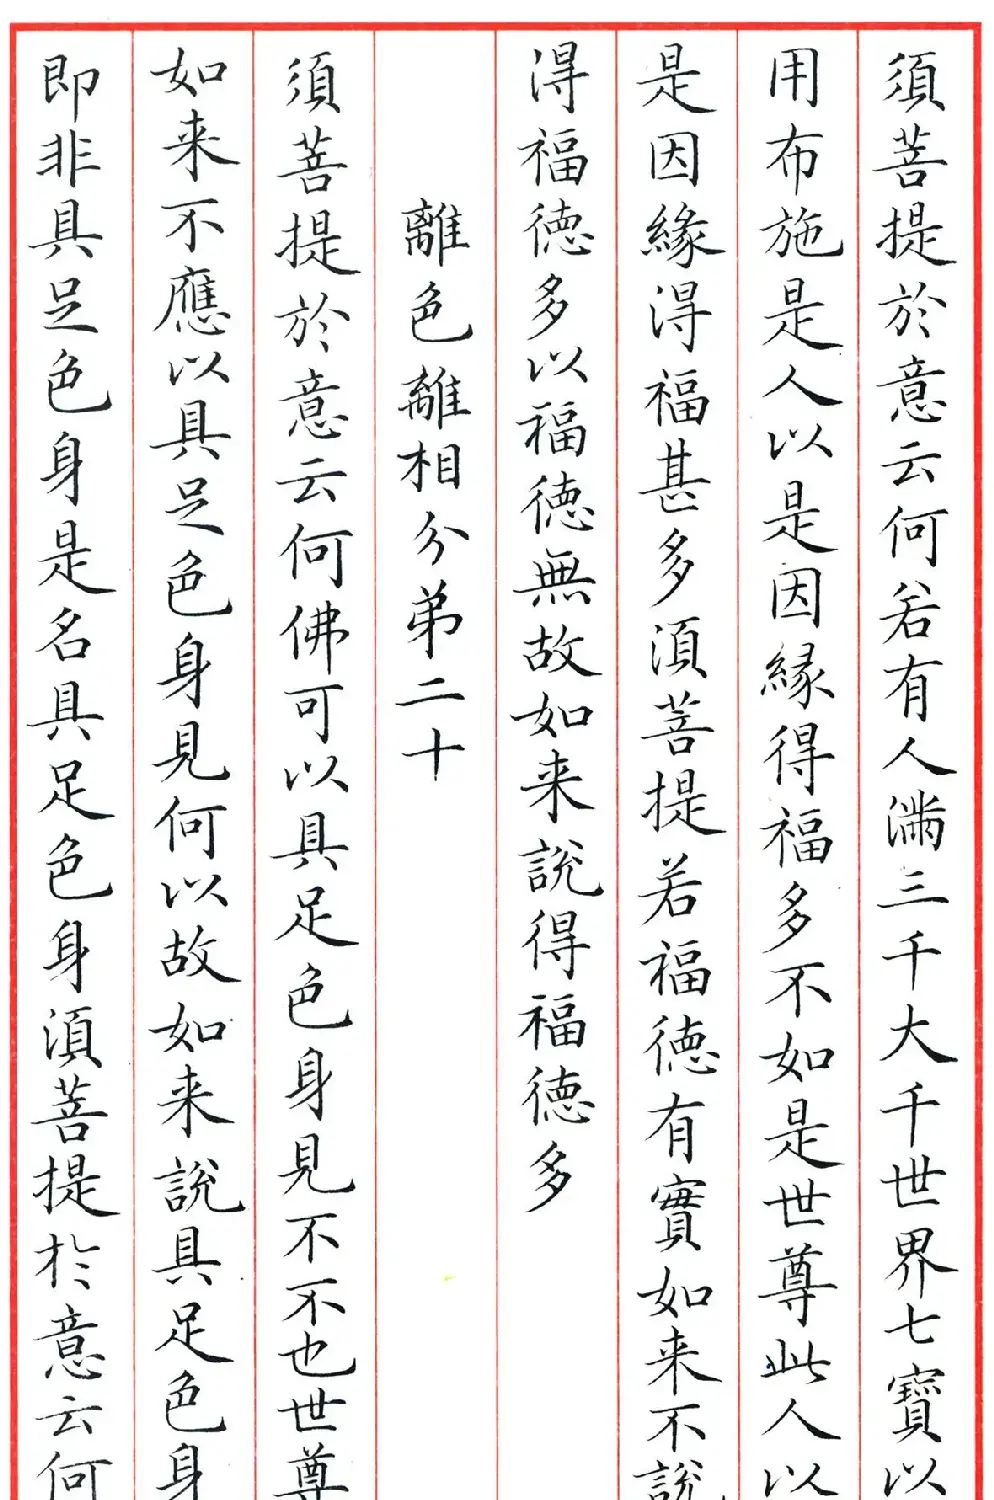 須菩提於意云何若有人滿三千大千世界七寶以
用布施是人以是因緣得福多不如是世尊此人以
是因緣得福甚多須菩提若福德有實如来不說
得福德多以福德無故如来說得福德多
離色離相分弟二十
須菩提於意云何佛可以具足色身見不不也世尊
如来不應以具足色身見何以故如来說具足色身
即非具足色身是名具足色身須菩提於意云何